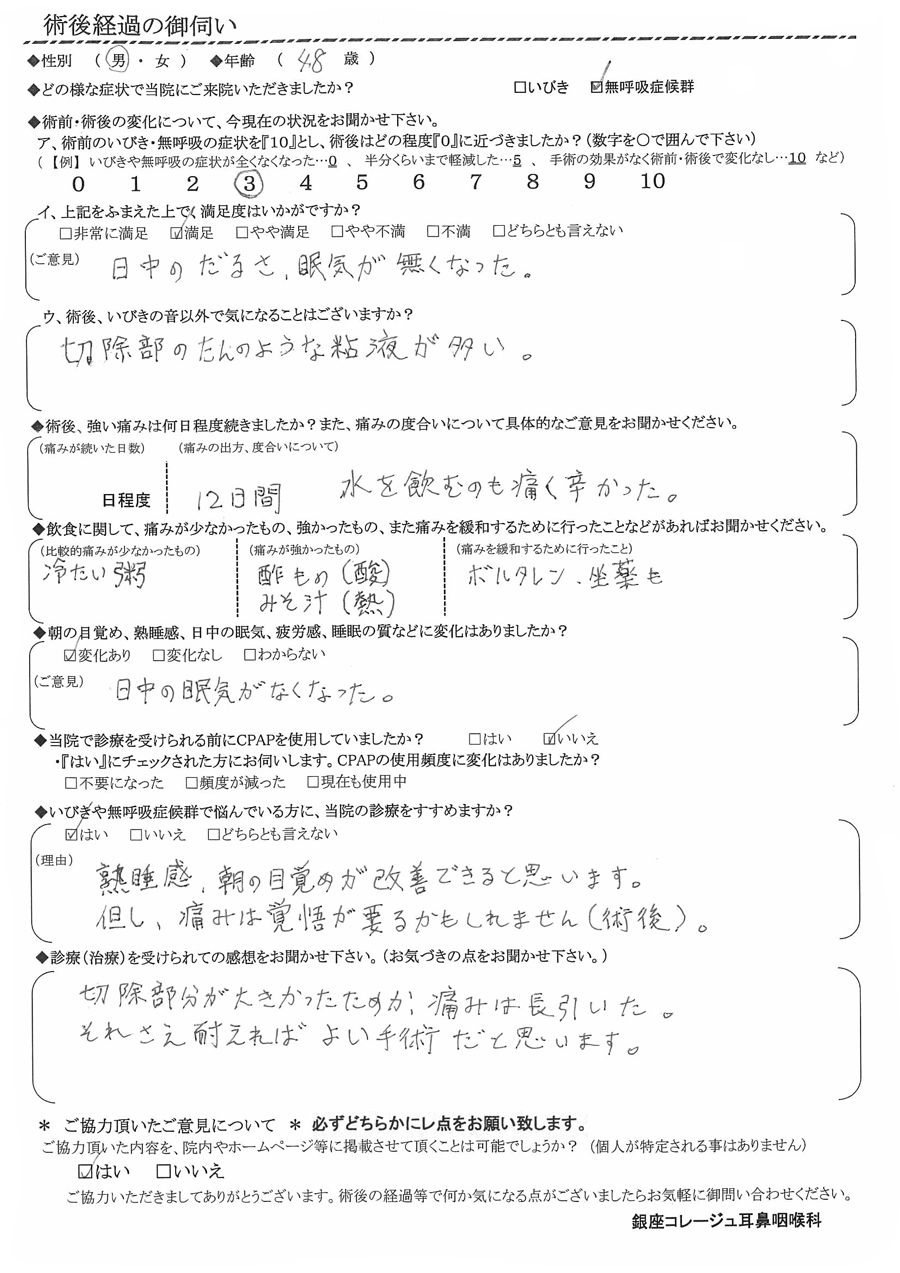 術後経過の御伺い
◆性別 （ 男 ・ 女 ） ◆年齢 （ 48 歳 ）
◆どの様な症状で当院にご来院いただきましたか？ □いびき ☑無呼吸症候群
◆術前・術後の変化について、今現在の状況をお聞かせ下さい。
ア、術前のいびき・無呼吸の症状を『10』とし、術後はどの程度『0』に近づきましたか？（数字を〇で囲んで下さい）
（ 【例】 いびきや無呼吸の症状が全くなくなった…0 、 半分くらいまで軽減した…5 、 手術の効果がなく術前・術後で変化なし…10 など）
0 1 2 ③ 4 5 6 7 8 9 10
イ、上記をふまえた上で、満足度はいかがですか？
□非常に満足 ☑満足 □やや満足 □やや不満 □不満 □どちらとも言えない
（ご意見） 日中のだるさ、眠気が無くなった。
ウ、術後、いびきの音以外で気になることはございますか？
切除部のたんのような粘液が多い。
◆術後、強い痛みは何日程度続きましたか？また、痛みの度合いについて具体的なご意見をお聞かせください。
（痛みが続いた日数） （痛みの出方、度合いについて）
日程度 12日間 水を飲むのも痛く辛かった。
◆飲食に関して、痛みが少なかったもの、強かったもの、また痛みを緩和するために行ったことなどがあればお聞かせください。
（比較的痛みが少なかったもの） （痛みが強かったもの） （痛みを緩和するために行ったこと）
冷たい粥 酢もの（酸） ボルタレン、坐薬も
みそ汁（熱）
◆朝の目覚め、熟睡感、日中の眠気、疲労感、睡眠の質などに変化はありましたか？
☑変化あり □変化なし □わからない
（ご意見） 日中の眠気がなくなった。
◆当院で診療を受けられる前にCPAPを使用していましたか？ □はい ☑いいえ
・『はい』にチェックされた方にお伺いします。CPAPの使用頻度に変化はありましたか？
□不要になった □頻度が減った □現在も使用中
◆いびきや無呼吸症候群で悩んでいる方に、当院の診療をすすめますか？
☑はい □いいえ □どちらとも言えない
（理由） 熟睡感、朝の目覚めが改善できると思います。
但し、痛みは覚悟が要るかもしれません（術後）。
◆診療（治療）を受けられての感想をお聞かせ下さい。（お気づきの点をお聞かせ下さい。）
切除部分が大きかったためか、痛みは長引いた。
それさえ耐えればよい手術だと思います。
＊ ご協力頂いたご意見について ＊ 必ずどちらかにレ点をお願い致します。
ご協力頂いた内容を、院内やホームページ等に掲載させて頂くことは可能でしょうか？ （個人が特定される事はありません）
☑はい □いいえ
ご協力いただきましてありがとうございます。術後の経過等で何か気になる点がございましたらお気軽に御問い合わせください。
銀座コレージュ耳鼻咽喉科